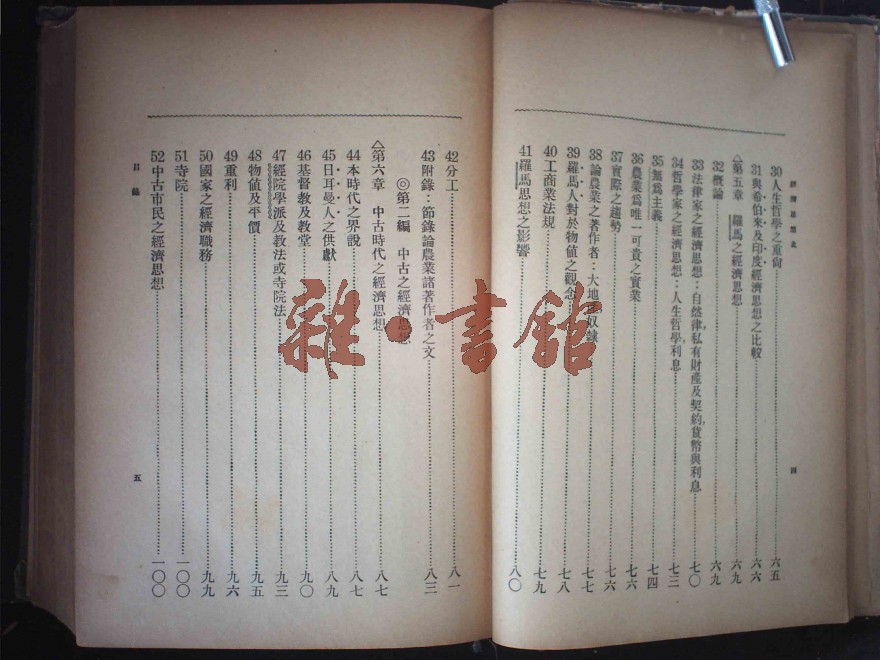 經濟思想史
30人生哲學之重商……六五
31與希伯來及印度經濟思想之比較……六六
第五章 羅馬之經濟思想……六九
32概論……六九
33法律家之經濟思想:自然律,私有財產及契約,貨幣與利息……七〇
34哲學家之經濟思想:人生哲學,利息……七三
35無為主義……七四
36農業為唯一可貴之實業……七六
37實際之趨勢……七六
38論農業之著作者:大地 奴隸……七七
39羅馬人對於物值之觀念……七八
40工商業法規……七九
41羅馬思想之影響……八〇
四
42分工……八一
43附錄:節錄論農業諸著作者之文……八三
◎第二編 中古之經濟思想
第六章 中古時代之經濟思想……八七
44本時代之界說……八七
45日耳曼人之供獻……八九
46基督教及教堂……九〇
47經院學派及教法或寺院法……九三
48物值及平價……九五
49重利……九六
50國家之經濟職務……九九
51寺院……一〇〇
52中古市民之經濟思想……一〇〇
目錄
五
雜·書館